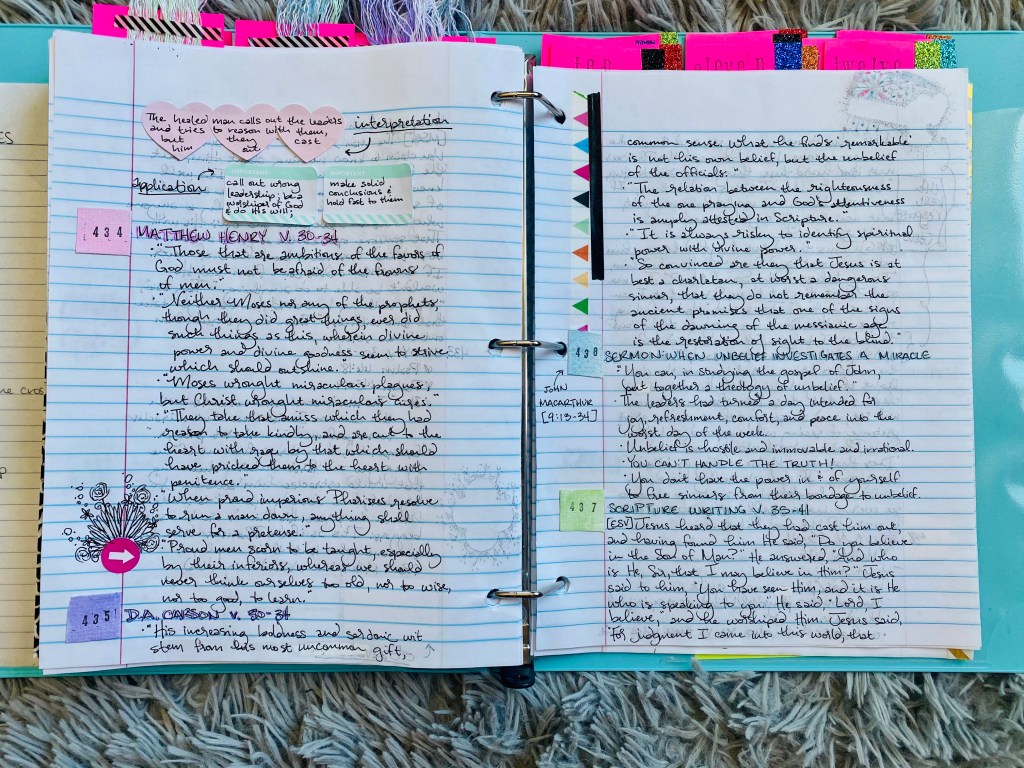 The healed man calls out the leaders
and tries to reason with them,
but they cast
him out.
interpretation
application
call out wrong
leadership; be a
worshiper of God
& do His will;
make solid
conclusions &
hold fast to them
434
MATTHEW HENRY V. 30-34
"Those that are ambitious of the favors of
God must not be afraid of the frowns
of men."
"Neither Moses nor any of the prophets,
though they did great things, ever did
such things as this, wherein divine
power and divine goodness seem to strive
which should outshine."
"Moses wrought miraculous plagues,
but Christ wrought miraculous cures."
"They take that amiss which they had
reason to take kindly, and are cut to the
heart with rage by that which should
have pricked them to the heart with
penitence."
"When proud imperious Pharisees resolve
to run a man down, anything shall
serve for a pretense."
"Proud men scorn to be taught, especially
by their inferiors, whereas we should
never think ourselves too old, nor to wise,
nor too good, to learn."
435
D.A. CARSON V. 30-34
"His increasing boldness and sardonic wit
stem from his most uncommon gift,
ten
eleven
twelve
common sense. What he finds 'remarkable'
is not his own belief, but the unbelief
of the officials."
"The relation between the righteousness
of the one praying and God's attentiveness
is amply attested in Scripture."
"It is always risky to identify spiritual
power with divine power."
"So convinced are they that Jesus is at
best a charlatan, at worst a dangerous
sinner, that they do not remember the
ancient promises that one of the signs
of the dawning of the messianic age
is the restoration of sight to the blind."
JOHN
MACARTHUR
[9:13-34]
SERMON: WHEN UNBELIEF INVESTIGATES A MIRACLE
"You can, in studying the gospel of John,
put together a theology of unbelief."
The leaders had turned a day intended for
joy, refreshment, comfort, and peace into the
worst day of the week.
Unbelief is hostile and immovable and irrational.
YOU CAN'T HANDLE THE TRUTH!
You don't have the power in & of yourself
to free sinners from their bondage to unbelief.
437
SCRIPTURE WRITING V. 35-41
[ESV] Jesus heard that they had cast him out,
and having found him He said, "Do you believe
in the Son of Man?" He answered, "And who
is He, Sir, that I may believe in Him?" Jesus
said to him, "You have seen Him, and it is He
who is speaking to you." He said, "Lord, I
believe," and he worshiped Him. Jesus said,
"For judgment I came into this world, that